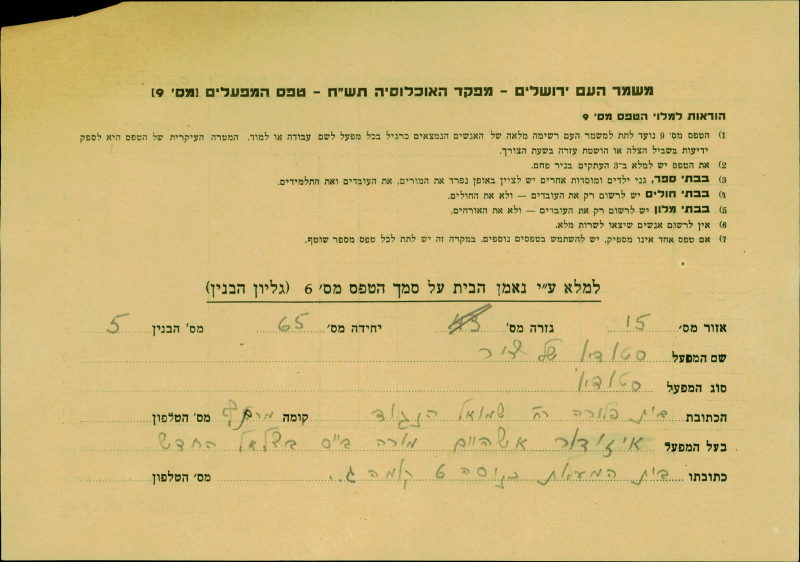 משמר העם ירושלים – מפקד האוכלוסיה תש"ח – טפס המפעלים [מס' 9]
הוראות למלוי הטפס מס' 9
1) הטפס מס' 9 נועד לתת למשמר העם רשימה מלאה של האנשים הנמצאים כרגיל בכל מפעל לשם עבודה או למוד. המטרה העיקרית של הטפס היא לספק
ידיעות בשביל הצלה או הושטת עזרה בשעת הצורך.
2) את הטפס יש למלא ב־3 העתקים בניר פחם.
3) בבתי ספר, גני ילדים ומוסדות אחרים יש לציין באופן נפרד את המורים, את העובדים ואת התלמידים.
4) בבתי חולים יש לרשום רק את העובדים — ולא את החולים.
5) בבתי מלון יש לרשום רק את העובדים — ולא את האורחים.
6) אין לרשום אנשים שיצאו לשרות מלא.
7) אם טפס אחד אינו מספיק, יש להשתמש בטפסים נוספים. במקרה זה יש לתת לכל טפס מספר שוטף.
למלא ע"י נאמן הבית על סמך הטפס מס' 6 (גליון הבנין)
אזור מס' 15 גזרה מס' יחידה מס' 65 מס' הבנין 5
שם המפעל סטודיו של ציור
סוג המפעל סטודיו
הכתובת בית פלורה רח' שמואל הנגיד קומה מרתף מס' הטלפון
בעל המפעל איזידור אשהיים מורה ביס בצלאל החדש
כתובתו בית המעלות כניסה ט קומה ג. מס' הטלפון